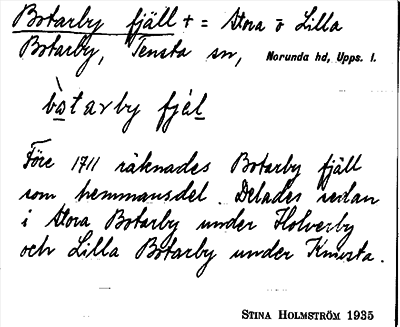 Botarby fjäll + = Stora o Lilla
Botarby, Tensta sn, Norunda hd, Upps. l.
bòtarby fjäl
Före 1711 räknades Botarby fjäll
som hemmansdel. Delades sedan
i Stora Botarby under Holverby
och Lilla Botarby under Knivsta.
STINA HOLMSTRÖM 1935